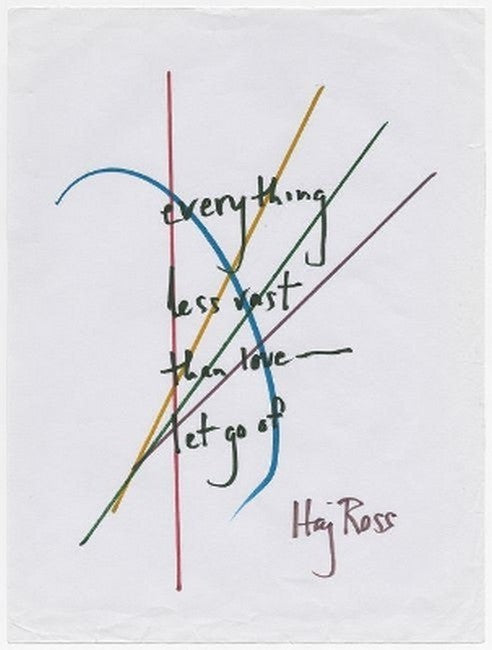 everything
less vast
than love—
let go of
Haj Ross